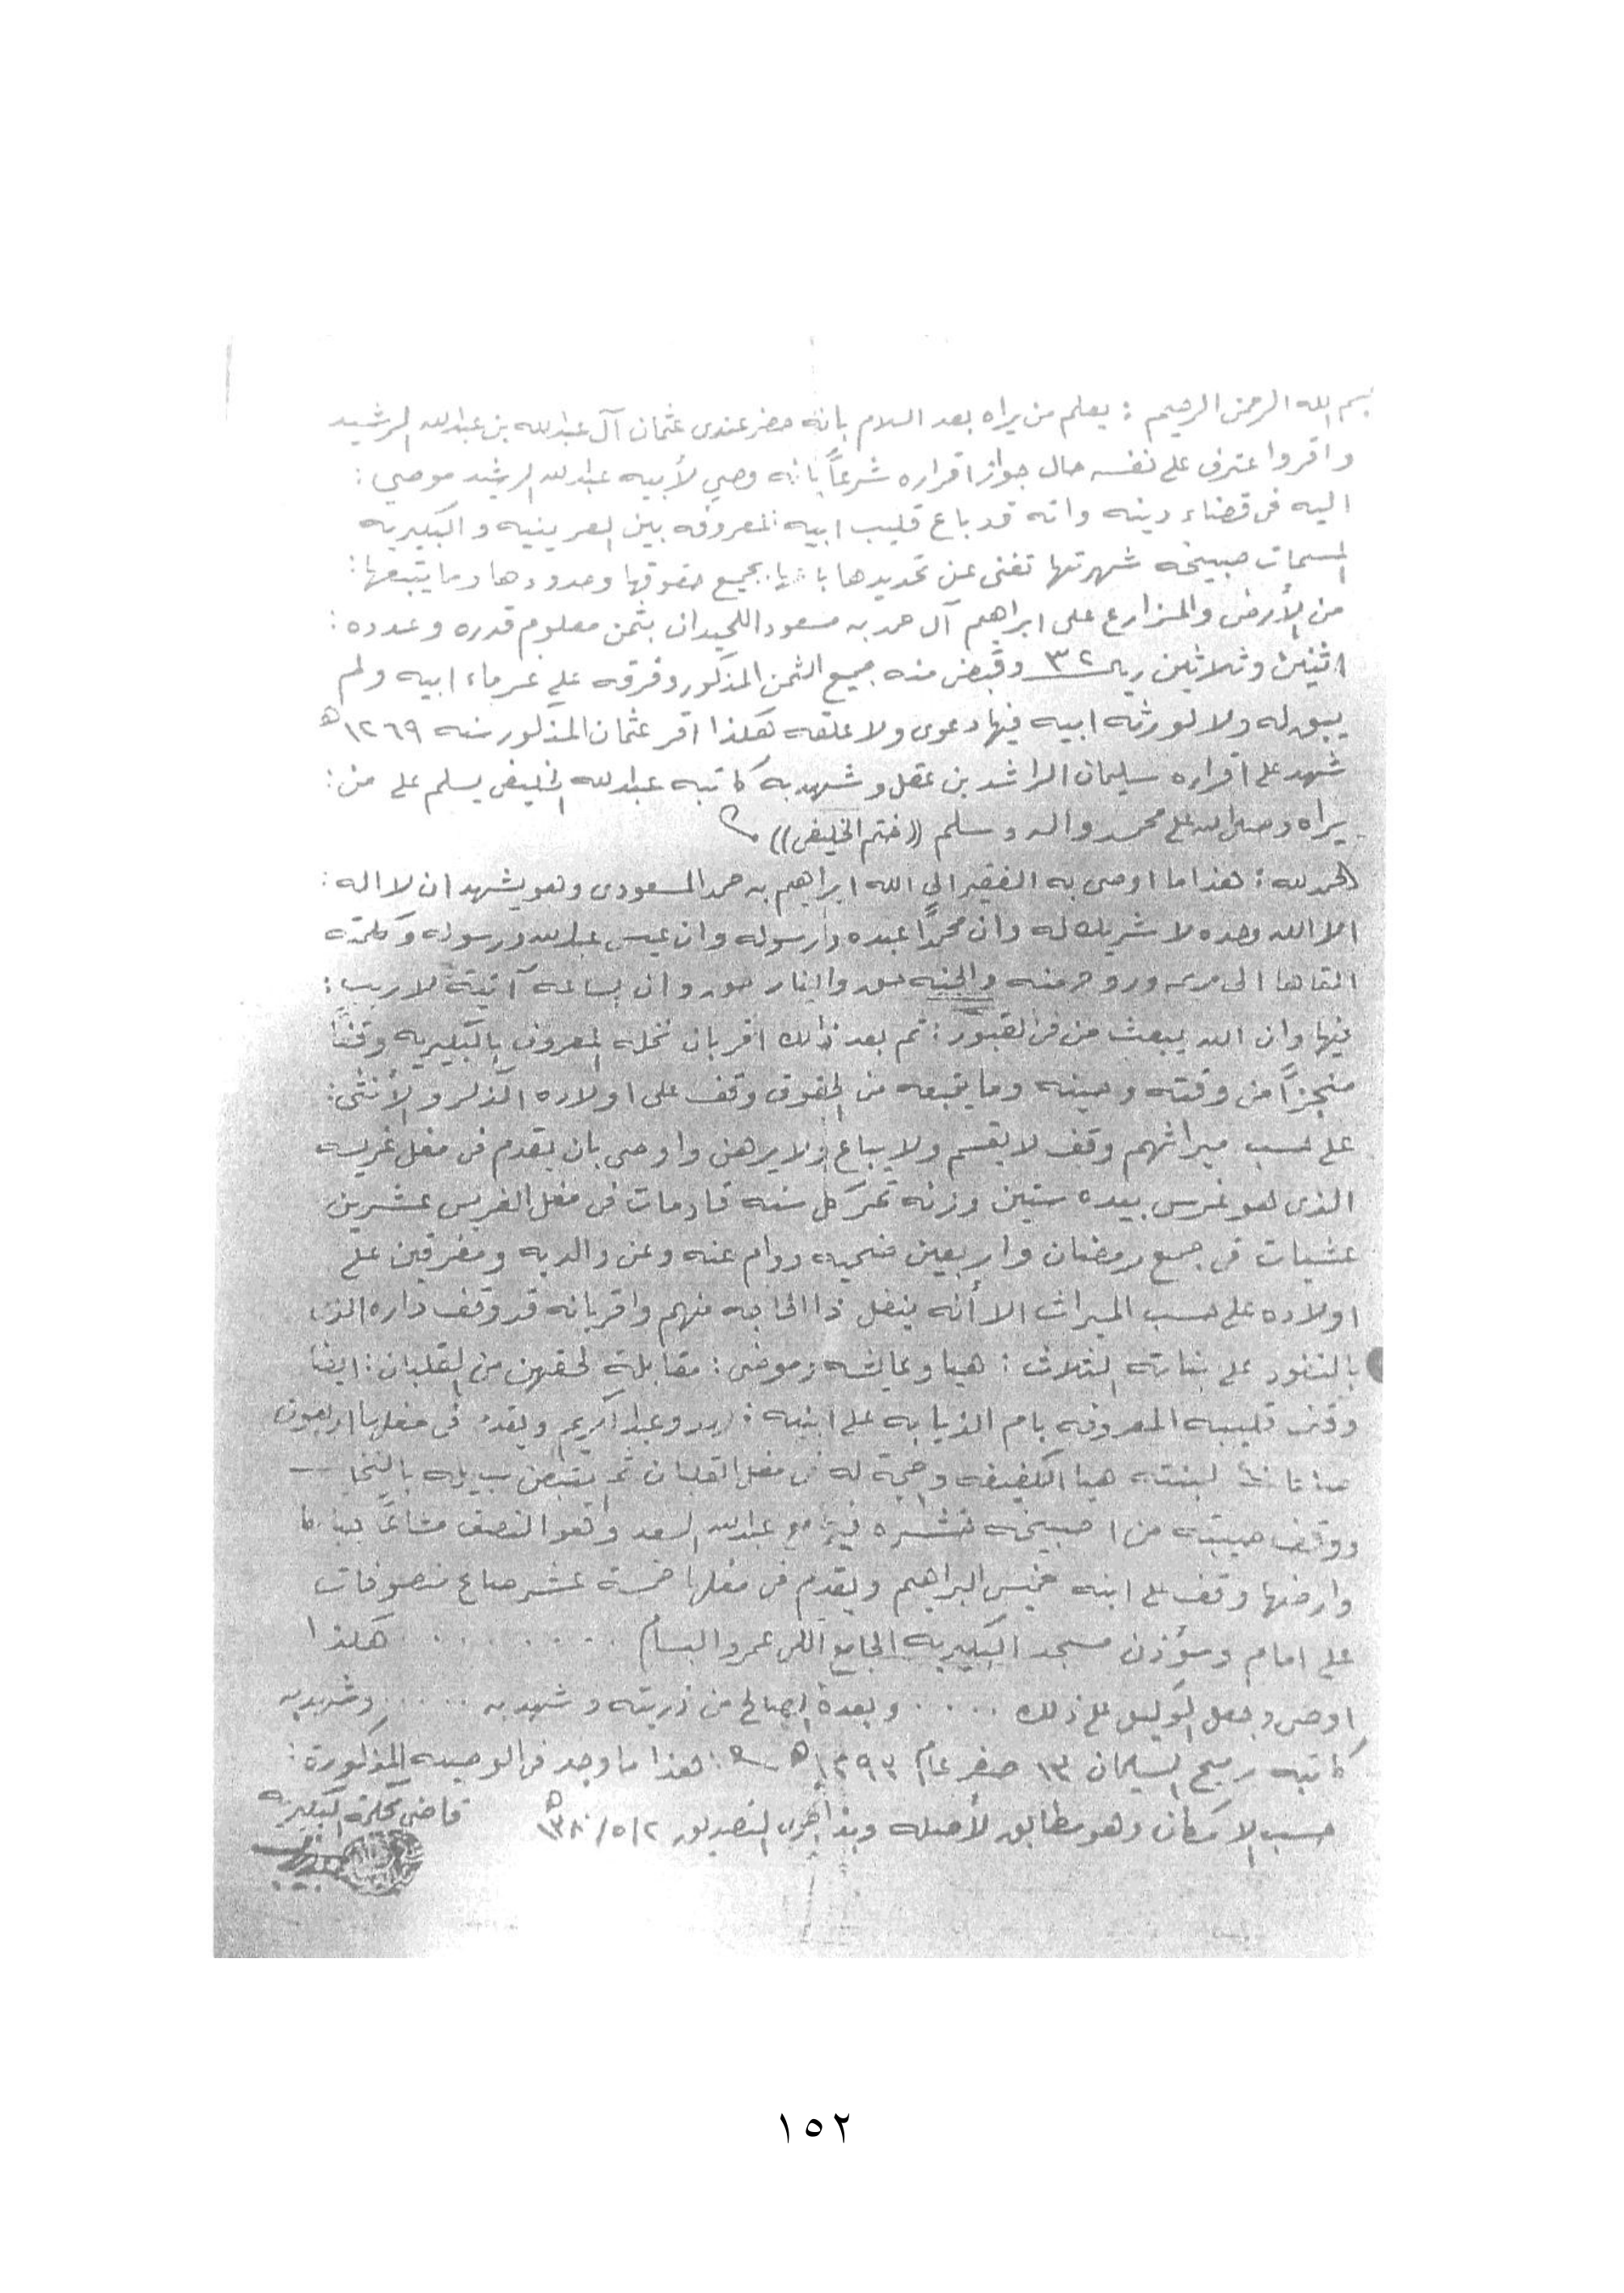 بسم الله الرحمن الرحيم : يعلم من يراه بعد السلام بانه حضر عندى عثمان آل عبدالله بن عبدالله الرشيد
واقر واعترف على نفسه حال جواز اقراره شرعاً بانه وصي لأبيه عبدالله الرشيد موصي :
اليه في قضاء دينه وانه قد باع قليب ابيه المعروفه بين العرينيه والبكيريه
المسمات صبيخه شهرتها تغنى عن تحديدها باعها بجميع حقوقها وحدودها وما يتبعها :
من الأرض والمزارع على ابراهيم آل حمد به مسعود اللحيدان بثمن معلوم قدره وعدده :
اثنين وثلاثين ريال ٣٢ وقبض منه جميع الثمن المذكور وفرقه علي غرماء ابيه ولم
يبق له ولا لورثه ابيه فيها دعوى ولا علقه هكذا اقر عثمان المذكور سنه ١٢٦٩ه
شهد على اقراره سليمان الراشد بن عقل وشهد به كاتبه عبدالله الخليفى يسلم على من :
يراه وصلى الله على محمد واله وسلم ((ختم الخليفى))
الحمد لله : هذا ما اوصى به الفقير الي الله ابراهيم به حمد المسعودى وهو يشهد ان لا اله :
الا الله وحده لا شريك له وان محمداً عبده ورسوله وان عيسى عبدالله ورسوله وكلمته
القاها الى مريم وروح منه والجنه حق والنار حق وان الساعه آتية لا ريب :
فيها وان الله يبعث من في القبور : ثم بعد ذالك اقر بان نخله المعروف بالبكيريه وقفاً
منجزاً من وقته وحينه وما يتبعه من الحقوق وقف على اولاده الذكر والأنثى :
على حسب ميراثهم وقف لا يقسم ولا يباع ولا يرهن واوصى بان يقدم في مغل غريسه
الذى هو غرس بيده ستين وزنه تمر كل سنه قادمات في مغل الغريس عشرين
عشيات في جمع رمضان واربعين ضحيه دوام عنه وعن والديه ومفرقين على
اولاده على حسب الميراث الا أنه ينفل ذا الحاجه منهم واقر بانه قد وقف داره الذى
على بناته الثلاث : هيا وعايشه وموضى : مقابلة لحقهن من القلبان : ايضا
وقف قليبه المعروفه بام الذيابه على ابنيه : وعبدالكريم ويقدم في مغلها اربعون
لبنته هيا الكفيفه وحجة له في مغل القلبان
ووقف صيبته من صبيخه مع عبدالله السعد وهو النصف مشاعًا
وارضها وقف على ابنه خميس البراهيم ويقدم في مغلها خمسة عشر صاع منصوفات
على امام ومؤذن مسجد البكيريه الجامع اللى عمروا البسام . . . . . . . هكذا
اوصى وجعل الوكيل على ذلك . . . . وبعدة الصالح من ذريته وشهد به . . . . . وشهد به
كاتبه رميح السليمان ١٣ صفر عام ١٢٩٣ه : هذا ما وجد في الوصيه المذكورة :
حسب الامكان وهو مطابق لأصله وبذا جرى التصديق ١٣٨٠/٥/٢ه
قاضى محكمة البكيريه
١٥٢